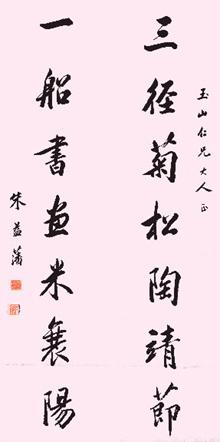 玉山仁兄大人正
三徑菊松陶靖節
一船書画米襄陽
朱益藩